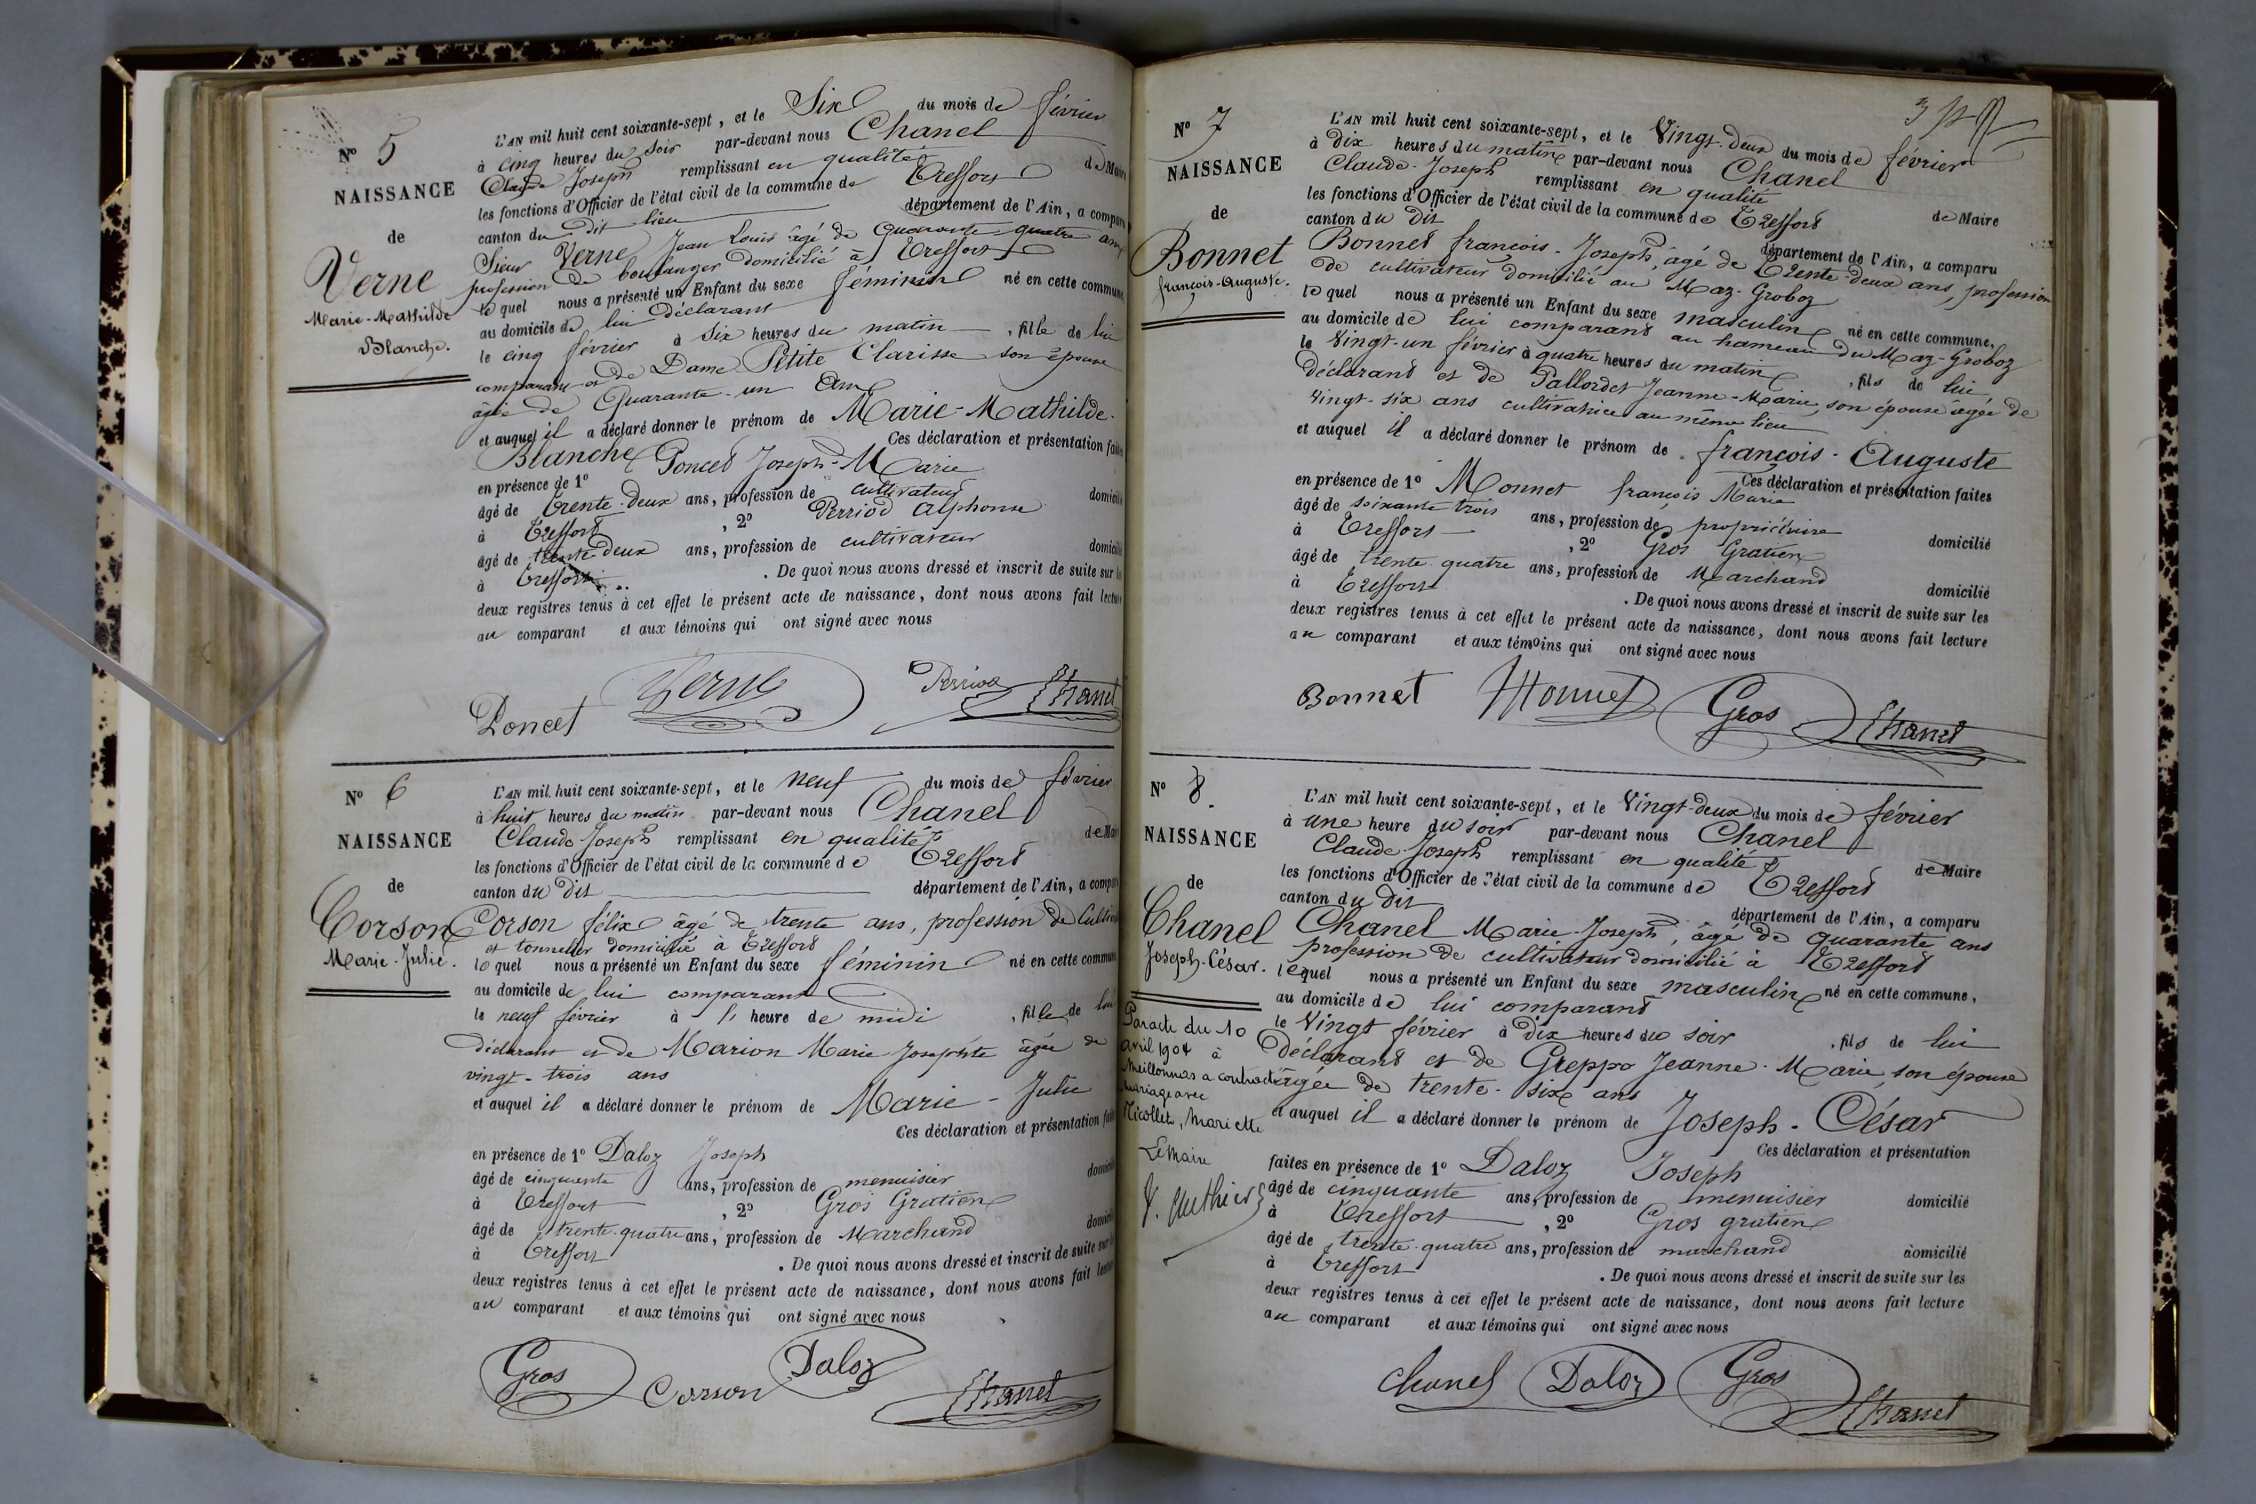 N° 5
NAISSANCE
de
Verne
Marie-Mathilde
Blanche.
L'AN mil huit cent soixante-sept, et le Six du mois de février
à cinq heures du soir par-devant nous Chanel
Claude Joseph remplissant en qualité de Maire
les fonctions d'Officier de l'état civil de la commune de Treffort
canton du dit lieu département de l'Ain, a comparu
Sieur Verne Jean Louis âgé de quarante quatre ans
profession de boulanger domicilié à Treffort
lequel nous a présenté un Enfant du sexe féminin né en cette commune
au domicile de lui déclarant
le cinq février à six heures du matin, fille de lui
comparant et de Dame Petite Clarisse son épouse
âgée de Quarante-un ans
et auquel il a déclaré donner le prénom de Marie-Mathilde-
Blanche Ces déclaration et présentation faites
en présence de 1° Poncet Joseph-Marie
âgé de trente-deux ans, profession de cultivateur domicilié
à Treffort, 2° Perriod Alphonse
âgé de trente-deux ans, profession de cultivateur domicilié
à Treffort. De quoi nous avons dressé et inscrit de suite sur les
deux registres tenus à cet effet le présent acte de naissance, dont nous avons fait lecture
au comparant et aux témoins qui ont signé avec nous
Poncet Verne Perriod Chanel
N° 6
NAISSANCE
de
Corson
Marie-Julie.
L'AN mil huit cent soixante-sept, et le neuf du mois de février
à huit heures du matin par-devant nous Chanel
Claude Joseph remplissant en qualité de Maire
les fonctions d'Officier de l'état civil de la commune de Treffort
canton du dit département de l'Ain, a comparu
Corson félix âgé de trente ans, profession de Cultiv
et tonnelier domicilié à Treffort
lequel nous a présenté un Enfant du sexe féminin né en cette commune
au domicile de lui comparant
le neuf février à l' heure de midi, fille de lui
déclarant et de Marion Marie Josephte âgée de
vingt-trois ans
et auquel il a déclaré donner le prénom de Marie-Julie
Ces déclaration et présentation faites
en présence de 1° Daloz Joseph
âgé de cinquante ans, profession de menuisier domicilié
à Treffort, 2° Gros Gratien
âgé de trente-quatre ans, profession de Marchand domicilié
à Treffort. De quoi nous avons dressé et inscrit de suite sur les
deux registres tenus à cet effet le présent acte de naissance, dont nous avons fait lecture
au comparant et aux témoins qui ont signé avec nous
Gros Corson Daloz Chanel
3
N° 7
NAISSANCE
de
Bonnet
françois-Auguste.
L'AN mil huit cent soixante-sept, et le Vingt-deux du mois de février
à dix heures du matin par-devant nous Chanel
Claude-Joseph remplissant en qualité de Maire
les fonctions d'Officier de l'état civil de la commune de Treffort
canton du dit département de l'Ain, a comparu
Bonnet françois-Joseph, âgé de Trente-deux ans, profession
de cultivateur domicilié au Maz-Groboz
lequel nous a présenté un Enfant du sexe masculin né en cette commune,
au domicile de lui comparant au hameau du Maz-Groboz
le Vingt-un février à quatre heures du matin, fils de lui
déclarant et de Pallordet Jeanne-Marie, son épouse âgée de
vingt-six ans cultivatrice au même lieu
et auquel il a déclaré donner le prénom de françois-Auguste
Ces déclaration et présentation faites
en présence de 1° Monnet françois Marie
âgé de soixante trois ans, profession de propriétaire domicilié
à Treffort, 2° Gros Gratien
âgé de trente quatre ans, profession de Marchand domicilié
à Treffort. De quoi nous avons dressé et inscrit de suite sur les
deux registres tenus à cet effet le présent acte de naissance, dont nous avons fait lecture
au comparant et aux témoins qui ont signé avec nous
Bonnet Monnet Gros Chanel
N° 8.
NAISSANCE
de
Chanel
Joseph-César.
Par acte du 10
avril 1904 à
Meillonnas a contracté
mariage avec
Nicollet, Mariette
Le Maire
L'AN mil huit cent soixante-sept, et le Vingt-deux du mois de février
à une heure du soir par-devant nous Chanel
Claude-Joseph remplissant en qualité de Maire
les fonctions d'Officier de l'état civil de la commune de Treffort
canton du dit département de l'Ain, a comparu
Chanel Marie-Joseph, âgé de quarante ans
profession de cultivateur domicilié à Treffort
lequel nous a présenté un Enfant du sexe masculin né en cette commune,
au domicile de lui comparant
le Vingt février à dix heures du soir, fils de lui
déclarant et de Greppo Jeanne-Marie, son épouse
âgée de trente-six ans
et auquel il a déclaré donner le prénom de Joseph-César
Ces déclaration et présentation
faites en présence de 1° Daloz Joseph
âgé de cinquante ans, profession de menuisier domicilié
à Treffort, 2° Gros gratien
âgé de trente-quatre ans, profession de marchand domicilié
à Treffort. De quoi nous avons dressé et inscrit de suite sur les
deux registres tenus à cet effet le présent acte de naissance, dont nous avons fait lecture
au comparant et aux témoins qui ont signé avec nous
Chanel Daloz Gros Chanel